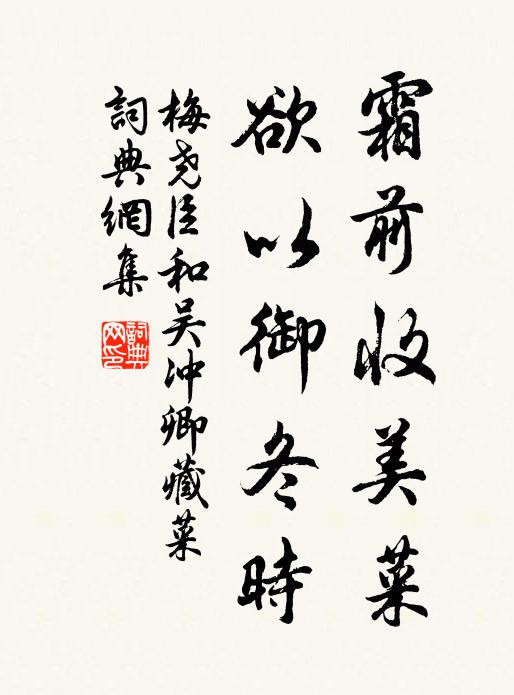 霜前收美菜
欲以御冬時
梅尧臣和吴冲卿藏菜
詞典網集
詞典网印